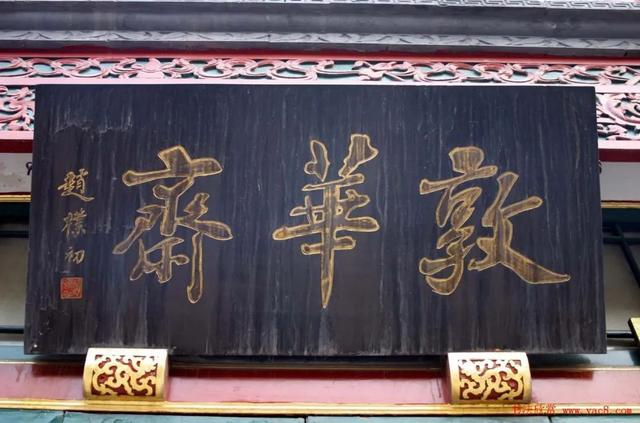 敦華齋
趙樸初
www.yac8.com